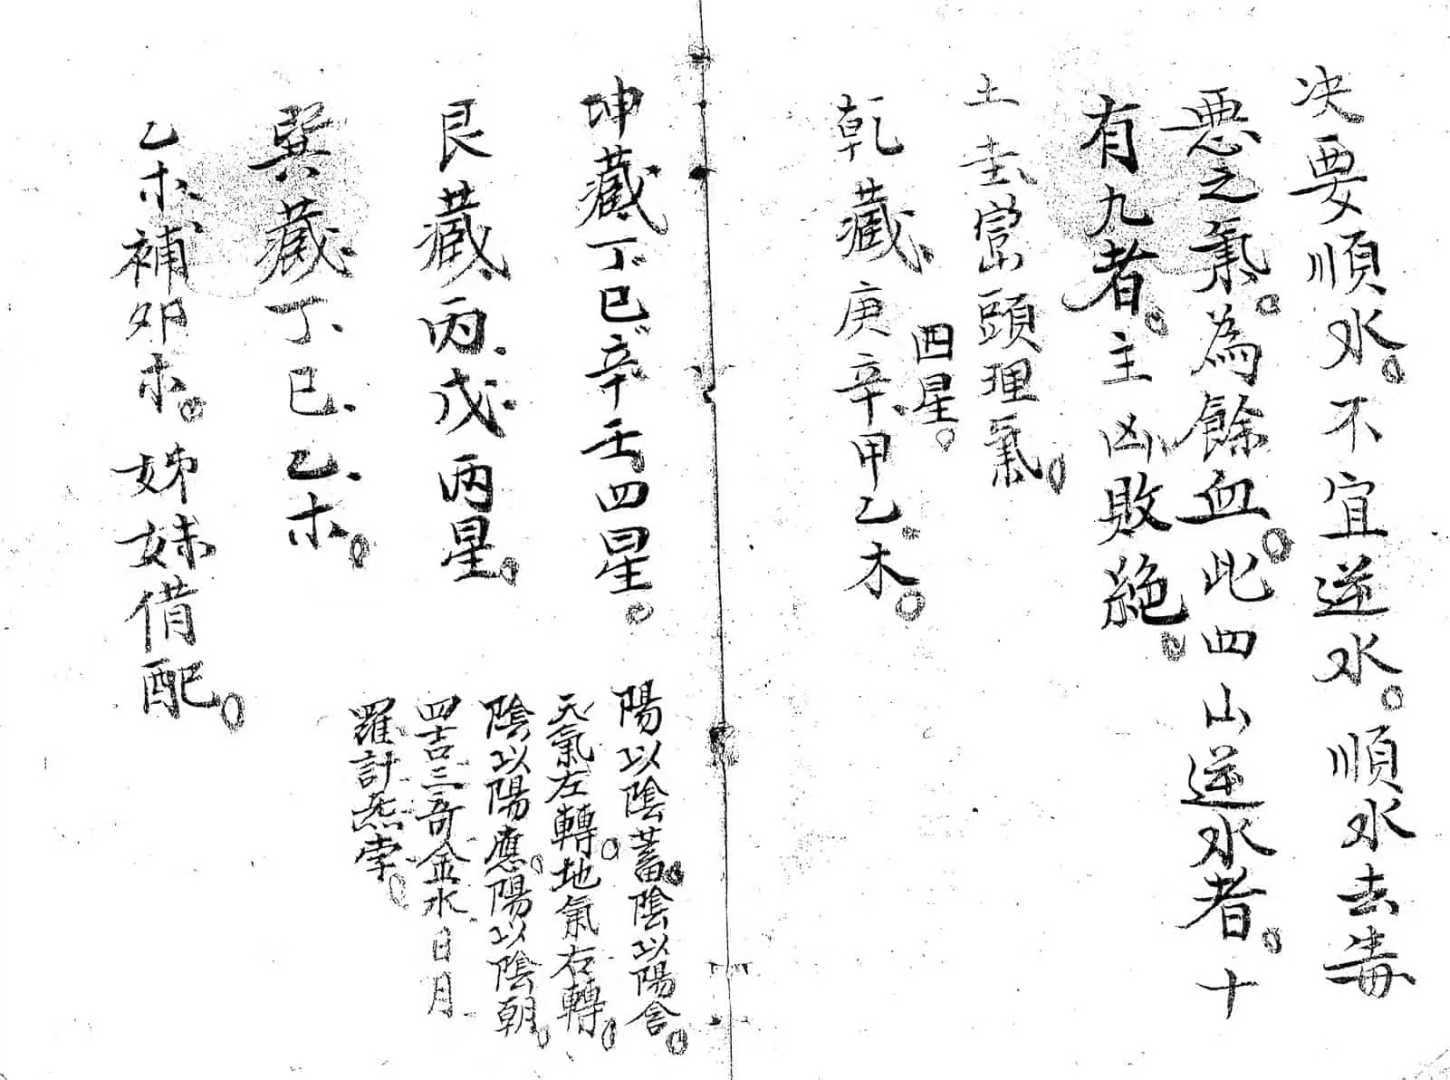 决要順水。不宜逆水。順水去毒
惡之氣。為餘血。此四山逆水者。十
有九者。主凶敗絶。
土圭巒頭理氣。
乾藏庚辛甲乙木。
四星。
坤藏丁巳辛壬四星。
艮藏丙戊两星。
巽藏丁巳乙木。
乙木補卯木。姊妹借配。
陽以陰蓄。陰以陽含。
天氣左轉。地氣右轉。
陰以陽應。陽以陰朝。
四吉三奇金水日月
羅計炁孛。